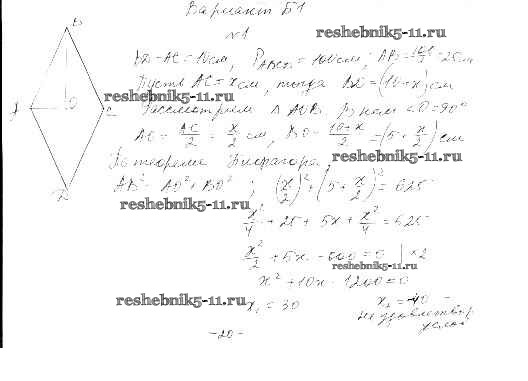 Вариант Б1
reshebnik5-11.ru
№1
B
BD - AC = 10 см, P ABCD = 100 см, AB = 100/4 = 25 см
Пусть AC = x см, тогда BD = (10 + x) см
reshebnik5-11.ru
A O C
Рассмотрим △ AOB. В нем ∠O = 90°
AO = AC/2 = x/2 см, BO = (10+x)/2 = (5 + x/2) см
По теореме Пифагора,
reshebnik5-11.ru
D
AB² = AO² + BO² ; (x/2)² + (5 + x/2)² = 625
reshebnik5-11.ru
x²/4 + 25 + 5x + x²/4 = 625
x²/2 + 5x - 600 = 0 | ×2
reshebnik5-11.ru
x² + 10x - 1200 = 0
reshebnik5-11.ru
x₁ = 30 x₂ = -40 -
не удовлетвор.
услов
-20-